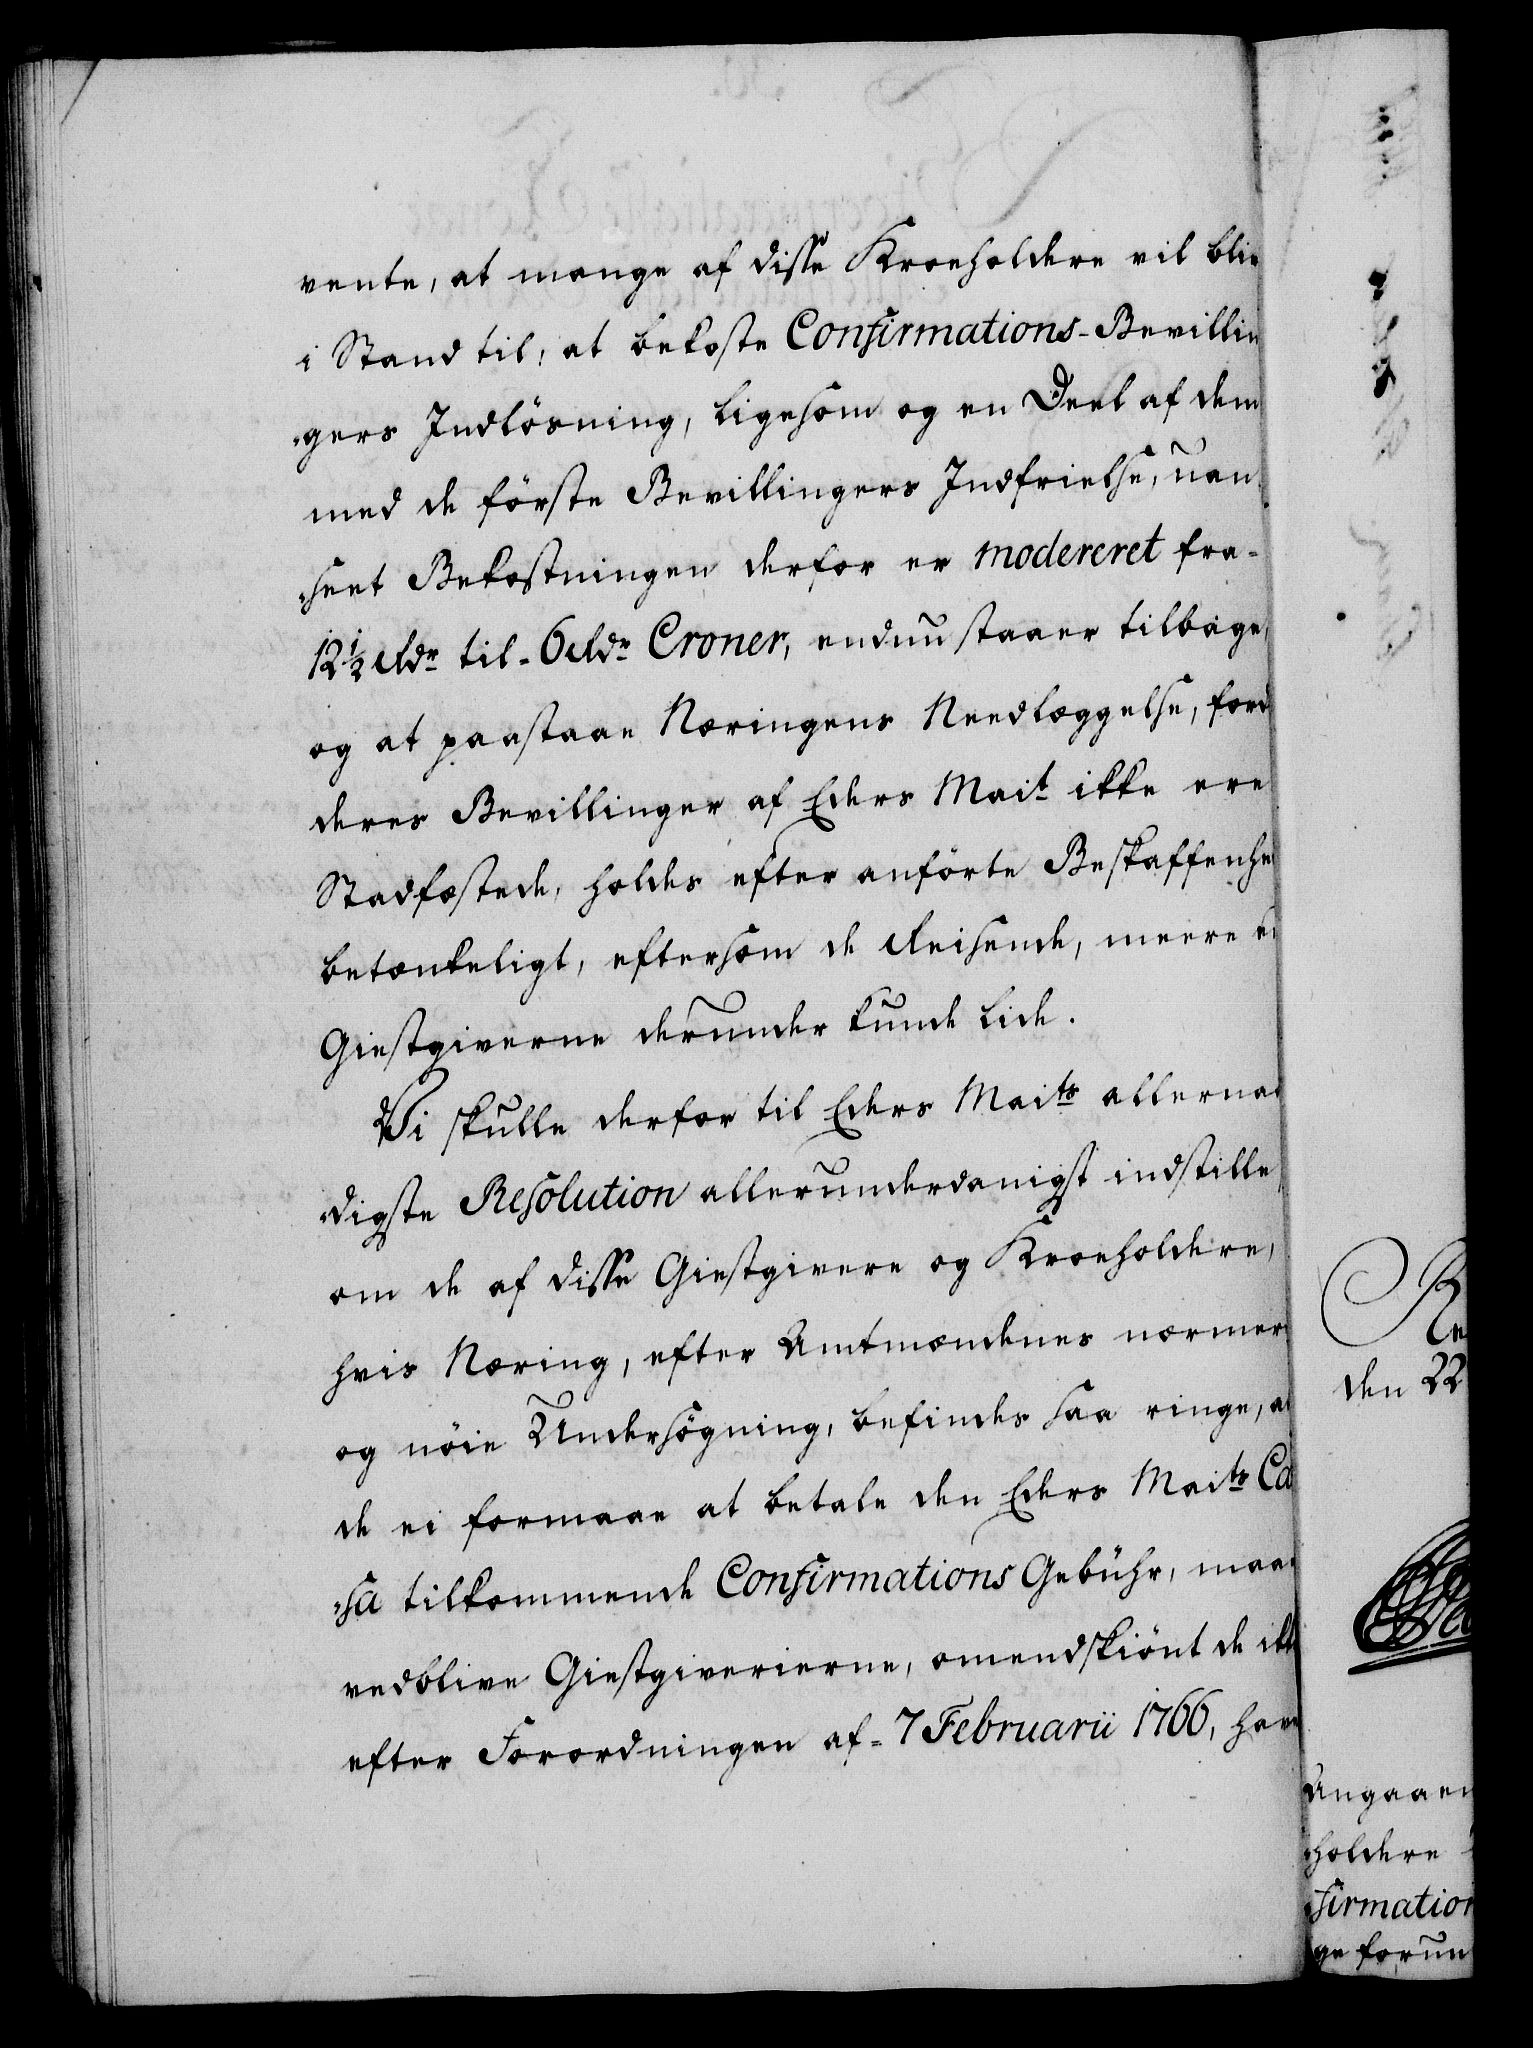 vente, at mange af disse Kroeholdere vil bliv
i Stand til, at bekoste Confirmations-Bevillin
gers Indlösning, ligesom og en Deel af dem
med de förste Bevillingers Indfrielse, uan
seet Bekostningen derfor er modereret fra-
12½ Rdr til-6 Rdr Croner, endnu staaer tilbage,
og at paastaae Næringens Needlæggelse, ford
deres Bevillinger af Eders Mait ikke ere
Stadfæstede, holdes efter anförte Beskaffenhe
betænkeligt, eftersom de Reisende, meere e
Giestgiverne derunder kunde lide.
Vi skulle derfor til Eders Maits allernaa
digste Resolution allerunderdanigst indstille,
om de af disse Giestgivere og Kroeholdere,
hvis Næring, efter Amtmændenes nærmer
og nöie Undersögning, befindes saa ringe, a
de ei formaae at betale den Eders Maits Ca
sa tilkommende Confirmations Gebühr, maa
vedblive Giestgiverierne, omendskiönt de ikk
efter Forordningen af-7 Februarii 1766, have
Re
den 22
Angaaen
holdere
firmation
ge forun